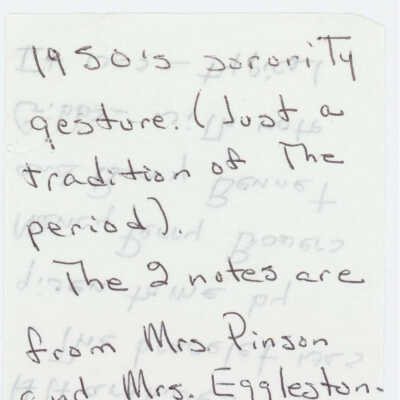 1950's sorority
gesture. (Just a
tradition of The
period).
The 2 notes are
from Mrs Pinson
and Mrs. Eggleston.